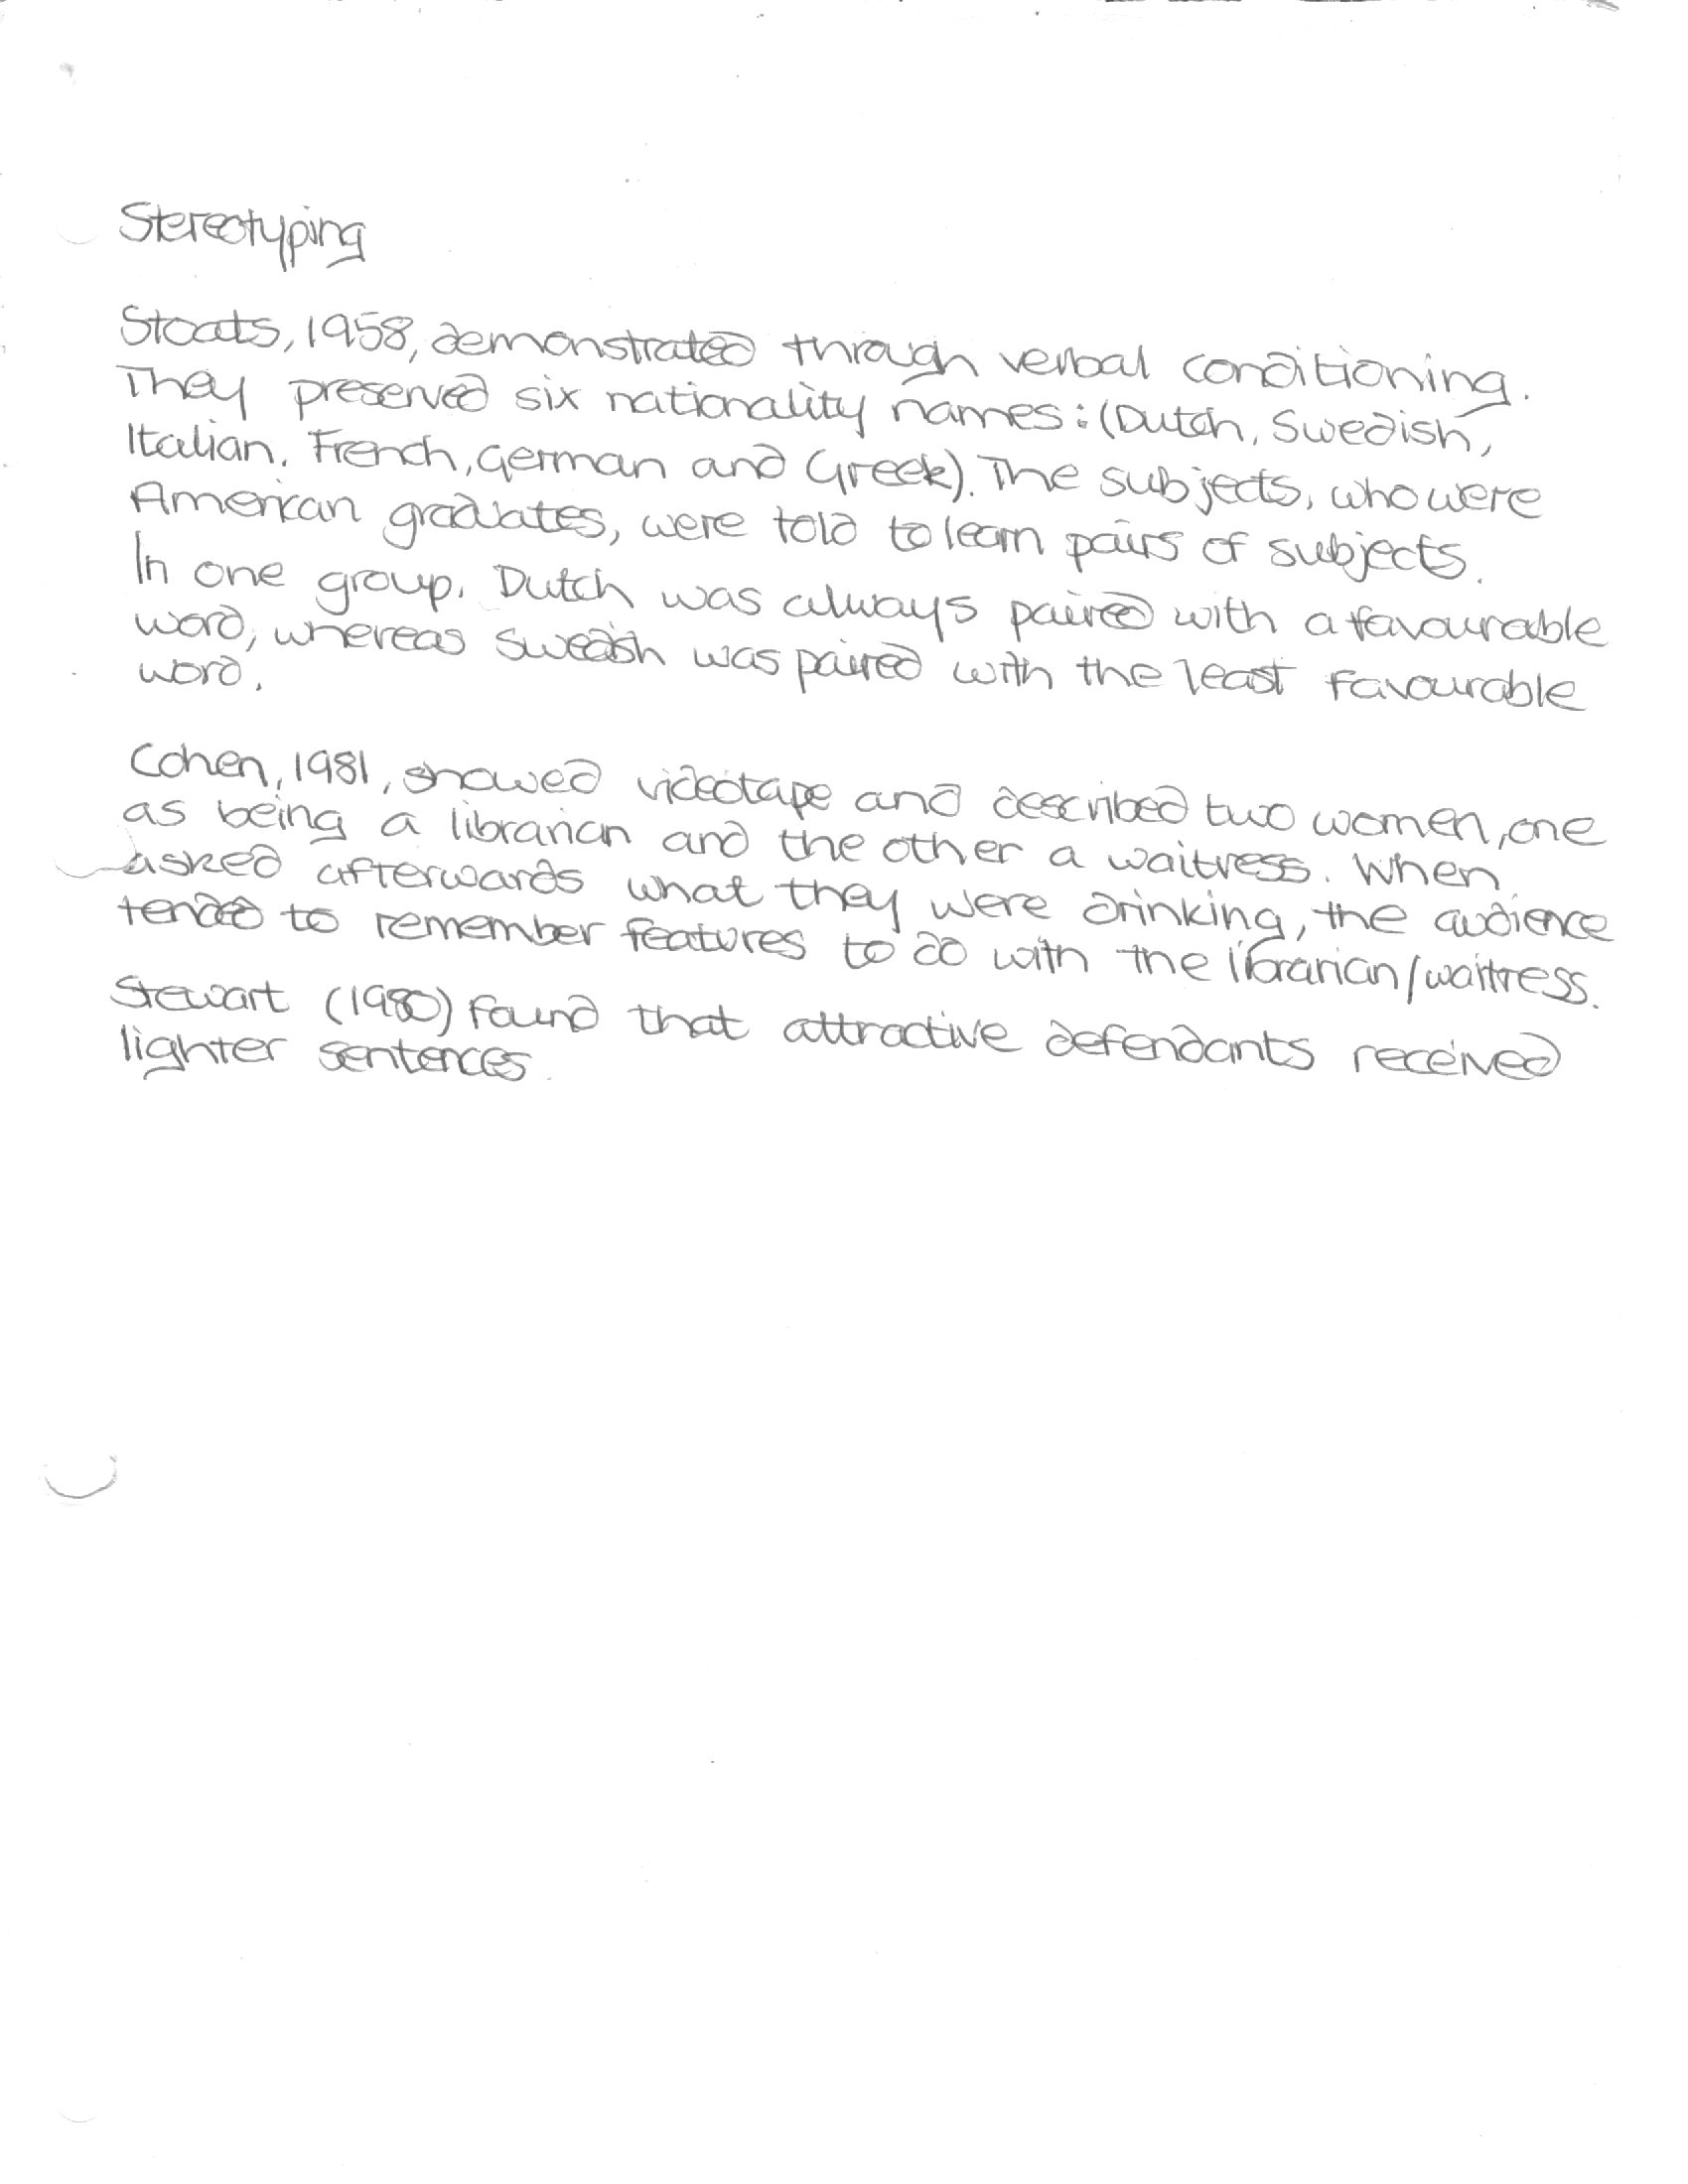 Stereotyping
Staats, 1958, demonstrated through verbal conditioning.
They preserved six nationality names: (Dutch, Swedish,
Italian, French, German and Greek). The subjects, who were
American graduates, were told to learn pairs of subjects.
In one group, Dutch was always paired with a favourable
word, whereas Swedish was paired with the least favourable
word.
Cohen, 1981, showed videotape and described two women, one
as being a librarian and the other a waitress. When
asked afterwards what they were drinking, the audience
tended to remember features to do with the librarian/waitress.
Stewart (1980) found that attractive defendants received
lighter sentences.